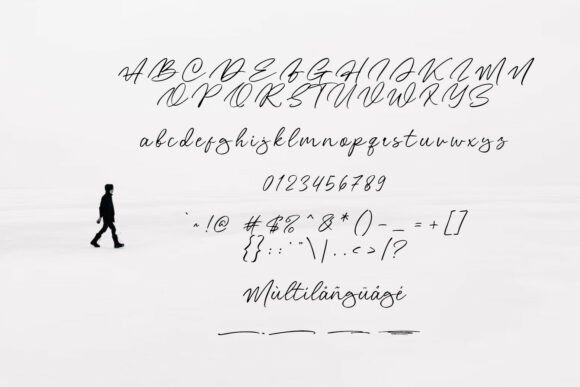 ABCDEFGHIJKLMN
OPQRSTUVWXYZ
abcdefghijklmnopqrstuvwxyz
0123456789
`~!@ #$%^&*()-_ =+[]
{}:;'"\|.,<>/?
Mùltilåñgüágé